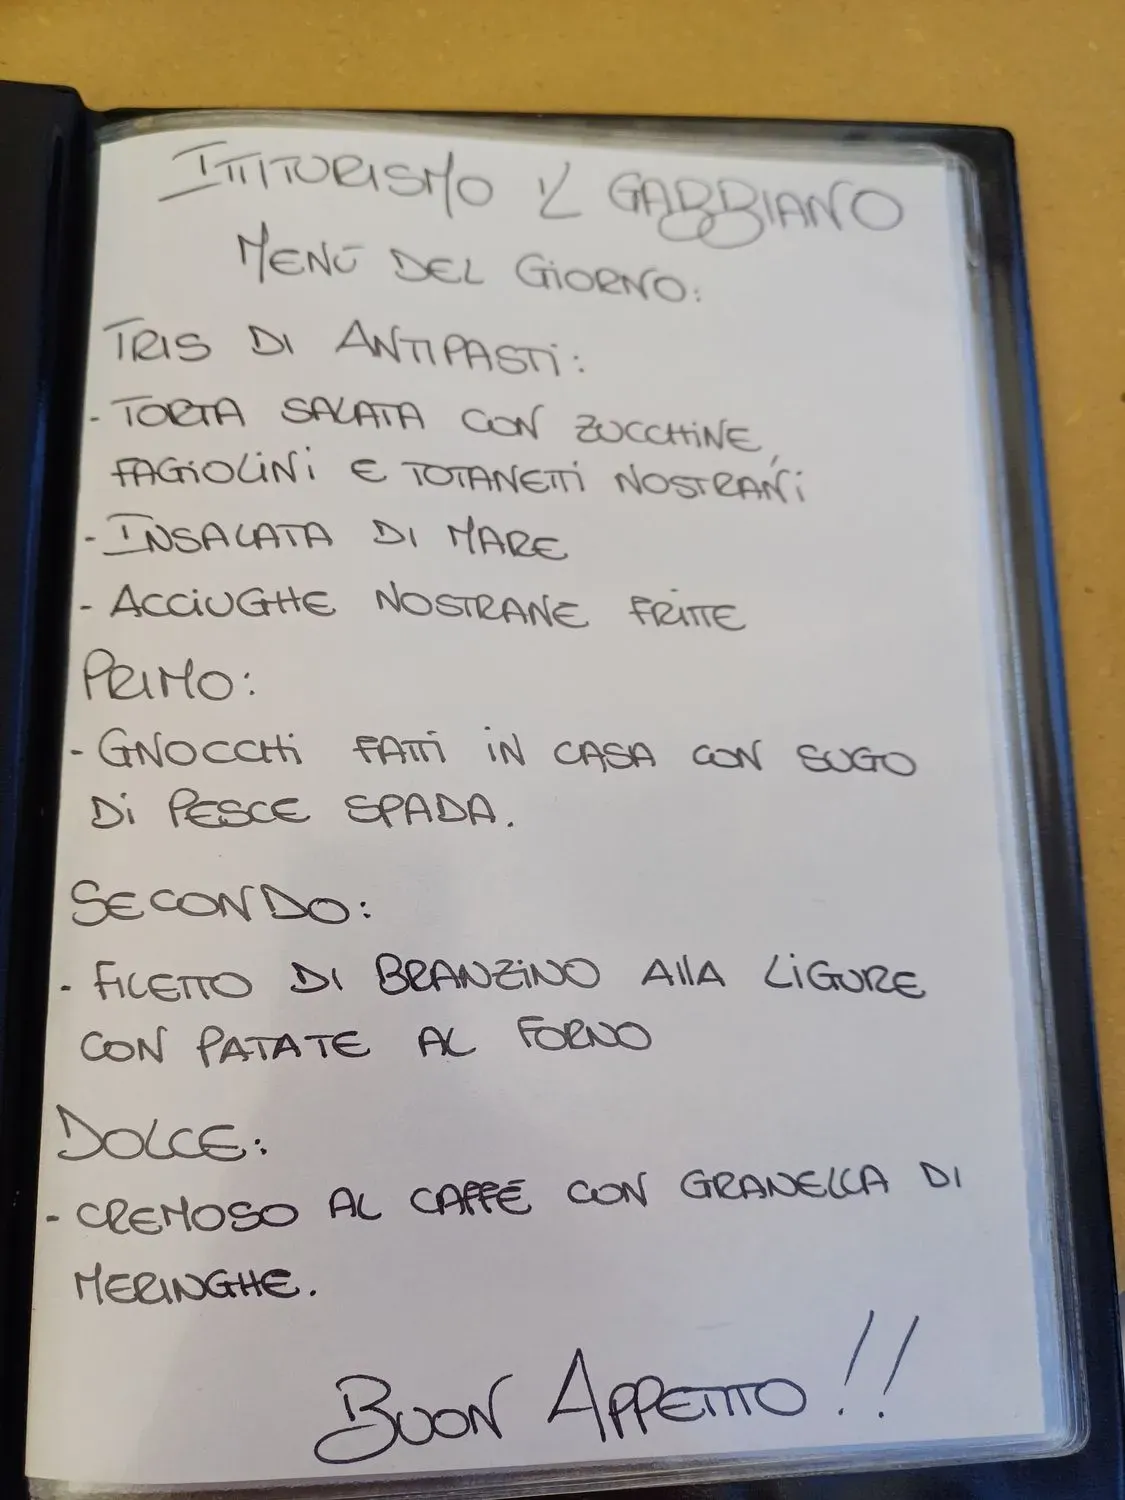 ITTITURISMO IL GABBIANO
MENÙ DEL GIORNO:
TRIS DI ANTIPASTI:
- TORTA SALATA CON ZUCCHINE,
FAGIOLINI E TOTANETTI NOSTRANI
- INSALATA DI MARE
- ACCIUGHE NOSTRANE FRITTE
PRIMO:
- GNOCCHI FATTI IN CASA CON SUGO
DI PESCE SPADA.
SECONDO:
- FILETTO DI BRANZINO ALLA LIGURE
CON PATATE AL FORNO
DOLCE:
- CREMOSO AL CAFFÈ CON GRANELLA DI
MERINGHE.
BUON APPETITO!!